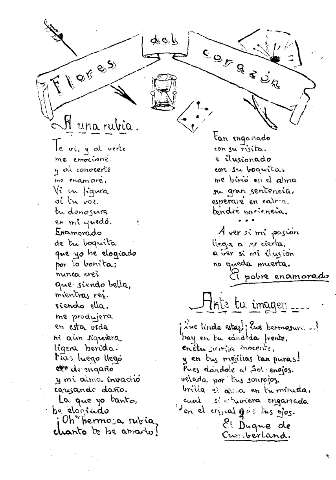 Flores del corazón
A una rubia.
Te vi, y al verte
me emocioné
y al conocerte
no mamaré.
Vi tu figura
oí tu voz.
tu donosura
en mi quedó.
Enamorado
de tu boquita
que yo he elogiado
por lo bonita;
nunca creí
que siendo bella,
mientras
siendo ella.
me produjera
en esta vida
ni aún siquiera
ligera herida.
Mas luego llegó
el desengaño
y mi alma invadió
causando daño.
La que yo tanto,
he elogiado
¡Oh hermosa rubia,
cuanto te he amado!
Tan engañado
con su risita.
e ilusionado
con su boquita.
me hirió en el alma
su gran sentencia.
esperaré en calma.
tendré paciencia.
A ver si mi pasión
llega a ser cierta,
a ver si mi ilusión
no queda muerta.
El pobre enamorado
Ante tu imagen
¡Que linda estas! ¡Que hermosura...!
hay en tu cándida frente,
en tu inocente,
y en tus mejillas tan puras!
Pues dándole al Sol enojos.
velada por tus sonrojos.
brilla el en tu mirada,
cual si estuviera engarzada
en el cristal de tus ojos.
El Duque de
Cumberland.